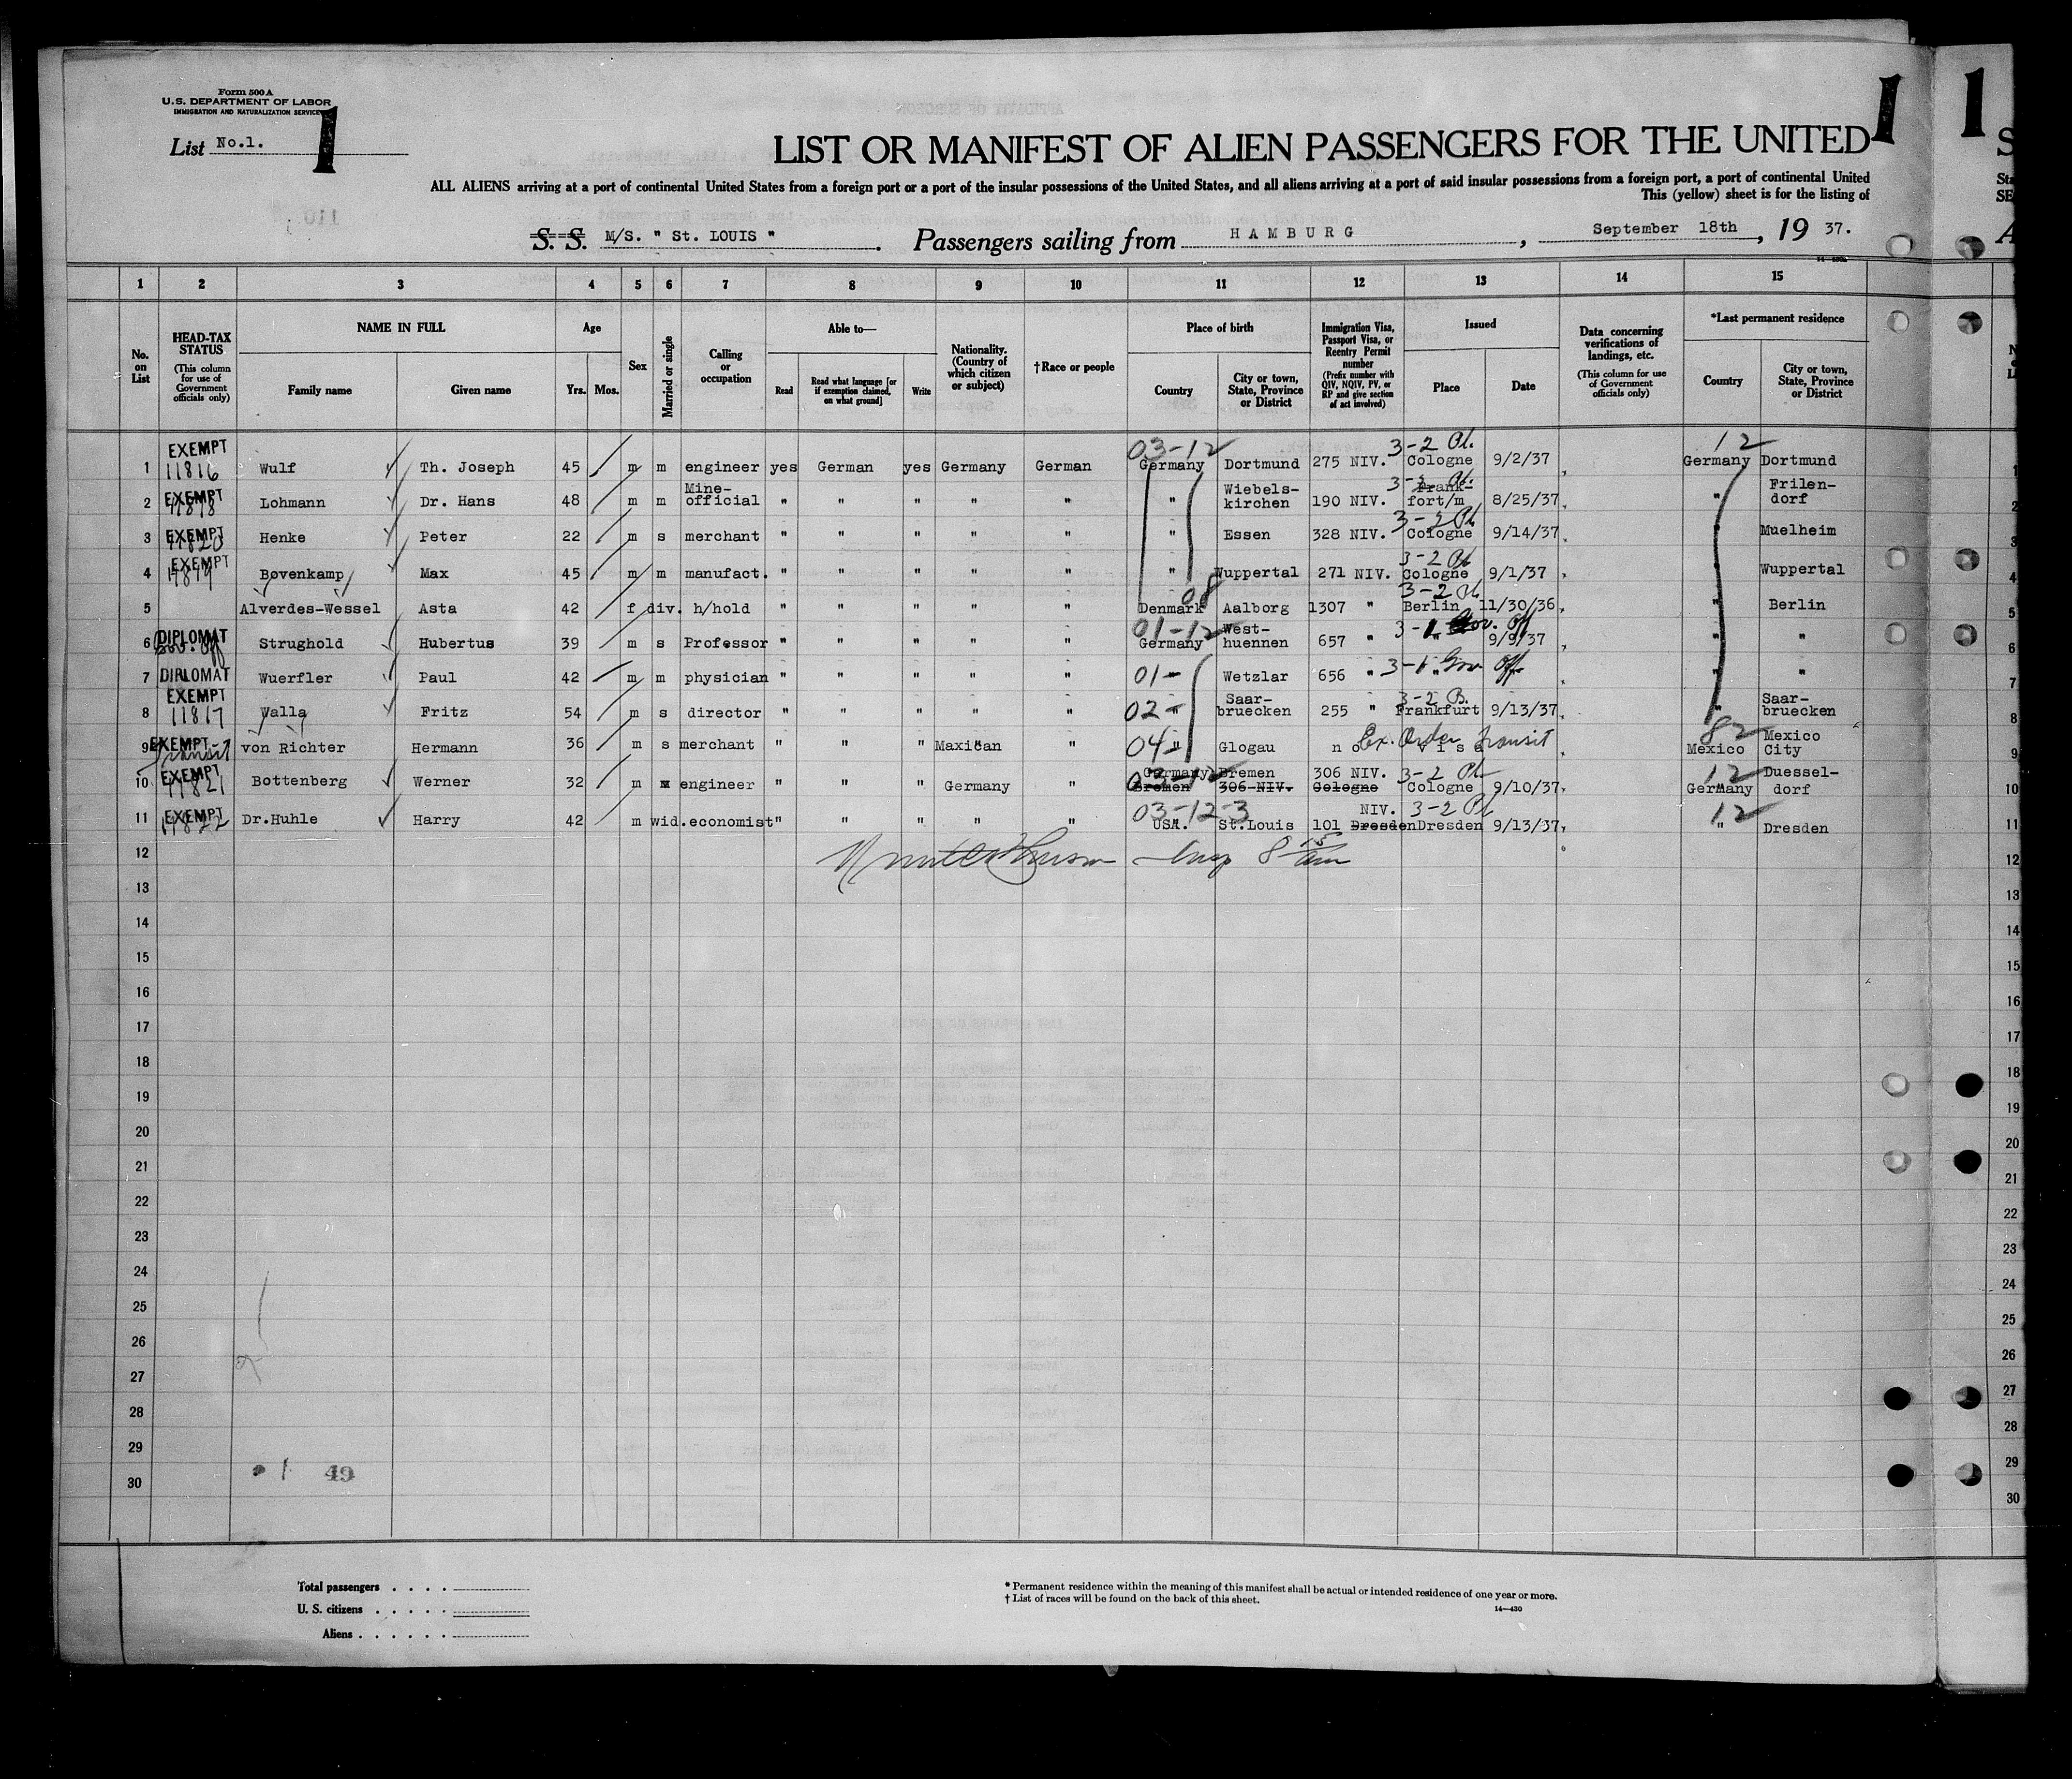 Form 500 A
U.S. DEPARTMENT OF LABOR
IMMIGRATION AND NATURALIZATION SERVICE
List No.1. 1
1 1
LIST OR MANIFEST OF ALIEN PASSENGERS FOR THE UNITED S
ALL ALIENS arriving at a port of continental United States from a foreign port or a port of the insular possessions of the United States, and all aliens arriving at a port of said insular possessions from a foreign port, a port of continental United Sta
This (yellow) sheet is for the listing of SE
S. S. M/S. " St. LOUIS ". Passengers sailing from HAMBURG, September 18th, 19 37. A
1 2 3 4 5 6 7 8 9 10 11 12 13 14 15
No. on List
HEAD-TAX STATUS (This column for use of Government officials only)
NAME IN FULL
Family name Given name
Age
Yrs. Mos.
Sex
Married or single
Calling or occupation
Able to—
Read Read what language [or if exemption claimed, on what ground] Write
Nationality. (Country of which citizen or subject)
†Race or people
Place of birth
Country City or town, State, Province or District
Immigration Visa, Passport Visa, or Reentry Permit number (Prefix number with QIV, NQIV, PV, or RP and give section of act involved)
Issued
Place Date
Data concerning verifications of landings, etc. (This column for use of Government officials only)
*Last permanent residence
Country City or town, State, Province or District
1 EXEMPT 11816 Wulf Th. Joseph 45 m m engineer yes German yes Germany German 03-12 Germany Dortmund 275 NIV. 3-2 Pl. Cologne 9/2/37 12 Germany Dortmund 1
2 EXEMPT 11818 Lohmann Dr. Hans 48 m m Mine-official " " " " " " Wiebels-kirchen 190 NIV. 3-2 Pl. Frank-fort/m 8/25/37 " Frilen-dorf 2
3 EXEMPT 11820 Henke Peter 22 m s merchant " " " " " " Essen 328 NIV. 3-2 Pl Cologne 9/14/37 " Muelheim 3
4 EXEMPT 11819 Bovenkamp Max 45 m m manufact. " " " " " " Wuppertal 271 NIV. 3-2 Pl Cologne 9/1/37 " Wuppertal 4
5 Alverdes-Wessel Asta 42 f div. h/hold " " " " " 08 Denmark Aalborg 1307 " 3-2 Pl Berlin 11/30/36 " Berlin 5
6 DIPLOMAT Gov. Off Strughold Hubertus 39 m s Professor " " " " " 01-12 Germany West-huennen 657 " 3-1 Gov. Off " 9/9/37 " " 6
7 DIPLOMAT Wuerfler Paul 42 m m physician " " " " " 01- Wetzlar 656 " 3-1 Gov Off " " " 7
8 EXEMPT 11817 Walla Fritz 54 m s director " " " " " 02- " Saar-bruecken 255 " 3-2 B. Frankfurt 9/13/37 " Saar-bruecken 8
9 EXEMPT - Transit von Richter Hermann 36 m s merchant " " " Maxican " 04- " Glogau no visa Ex. Order Transit 82 Mexico Mexico City 9
10 EXEMPT 11821 Bottenberg Werner 32 m engineer " " " Germany " 03-12 Germany Bremen 306 NIV. 3-2 Pl Cologne 9/10/37 12 Germany Duessel-dorf 10
Bremen 306-NIV. Cologne
11 EXEMPT 11822 Dr.Huhle Harry 42 m wid. economist " " " " " 03-12-3 USA. St.Louis 101 NIV. Dresden 3-2 Pl Dresden 9/13/37 12 " Dresden 11
12 Insp 8 15 am 12
13 13
14 14
15 15
16 16
17 17
18 18
19 19
20 20
21 21
22 22
23 23
24 24
25 25
26 26
27 27
28 28
29 29
30 30
1 49
Total passengers . . . .
U. S. citizens . . . . .
Aliens . . . . . .
* Permanent residence within the meaning of this manifest shall be actual or intended residence of one year or more.
† List of races will be found on the back of this sheet.
14—430